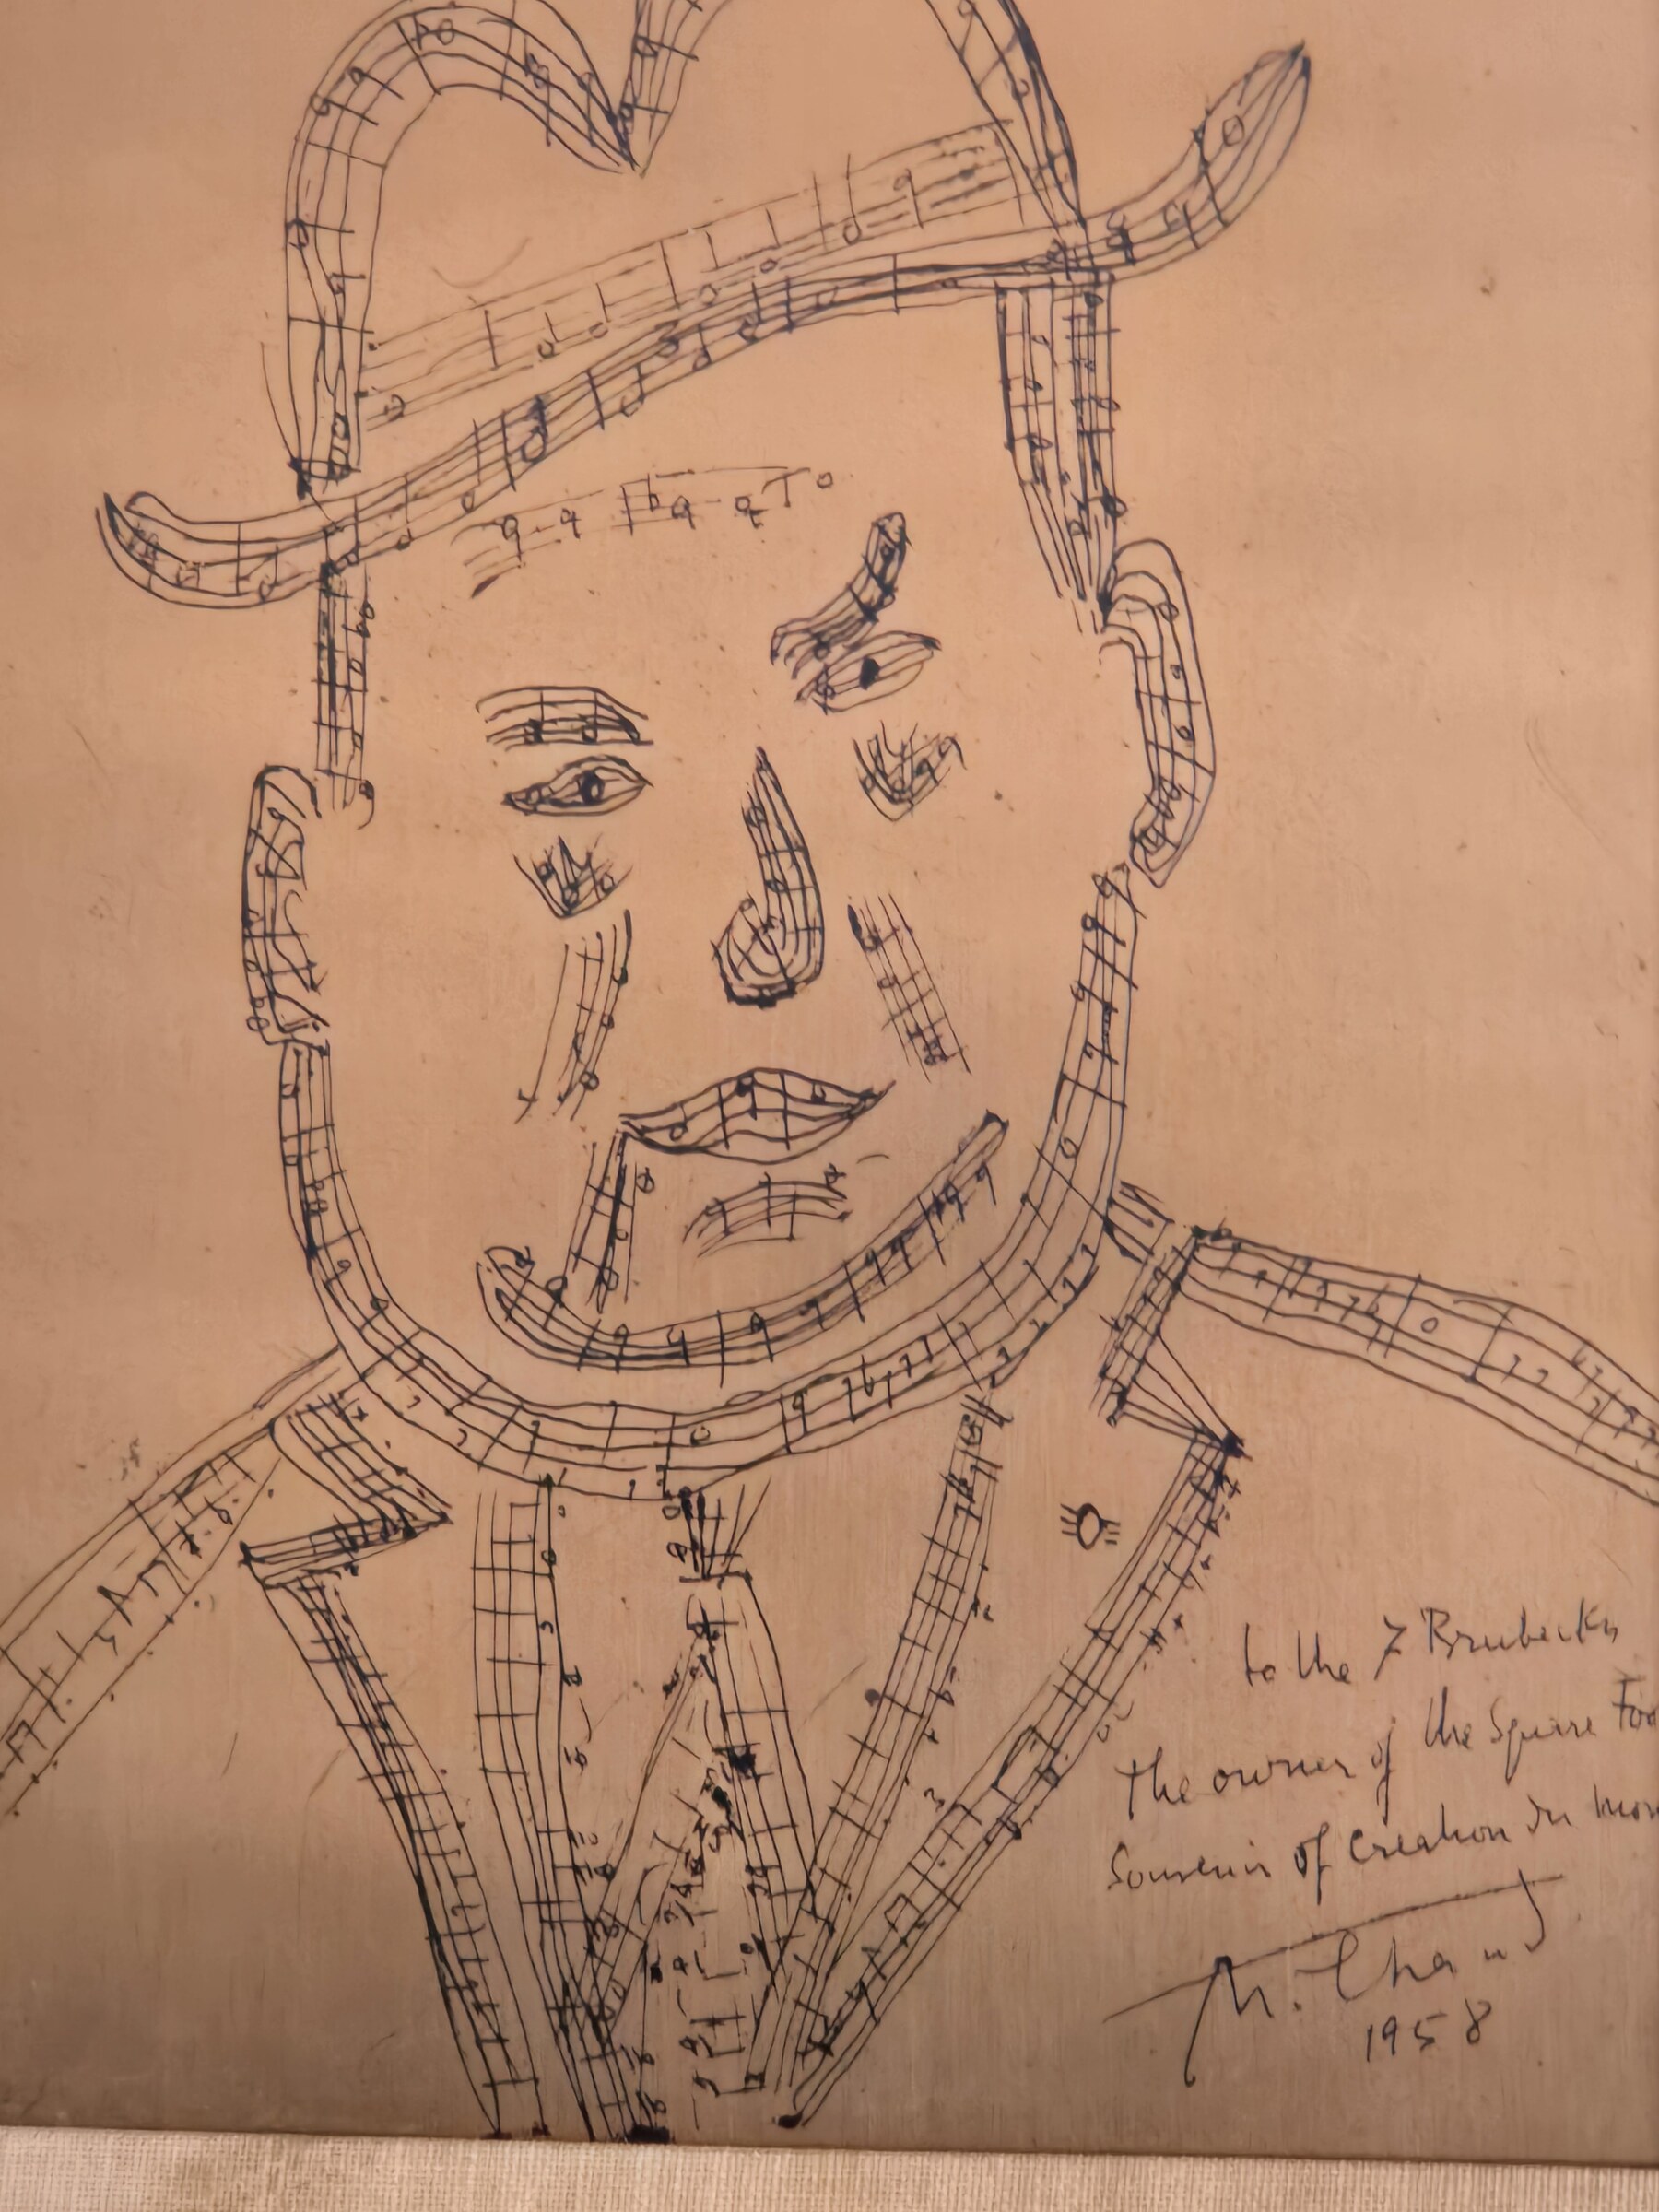 to the 7 Brubecks
the owner of the Square Foo
Souvenir of creation in
M. Chand
1958